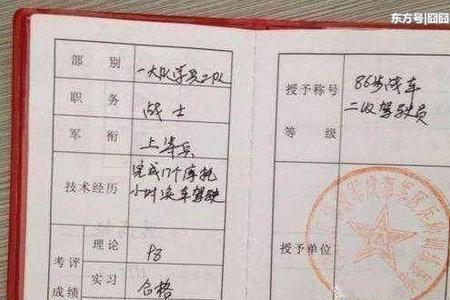 东方号|囧囧
部别
一大队学兵二队
职务
战士
军衔
上等兵
技术经历
完成17个摩托
小时乘车驾驶
考评
成绩
理论
98
实习
合格
授予称号
86步战车
等级
二级驾驶员
授予单位